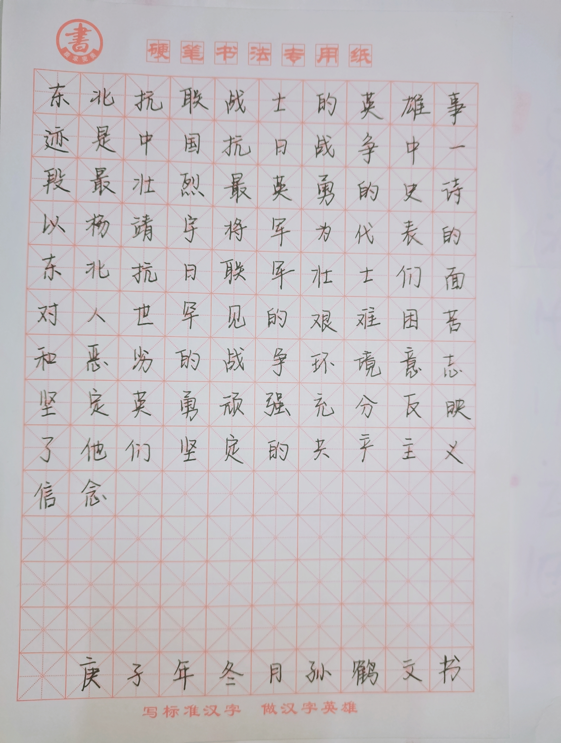 書
硬笔书法专用纸
东北抗联战士的英雄事
迹是中国抗日战争中一
段最壮烈最英勇的史诗
以杨靖宇将军为代表的
东北抗日联军壮士们面
对人世军见的艰难困苦
和恶劣的战争环境意志
坚定英勇顽强充分反映
了他们坚定的共产主义
信念
庚子年冬月孙鹤文书
写标准汉字 做汉字英雄